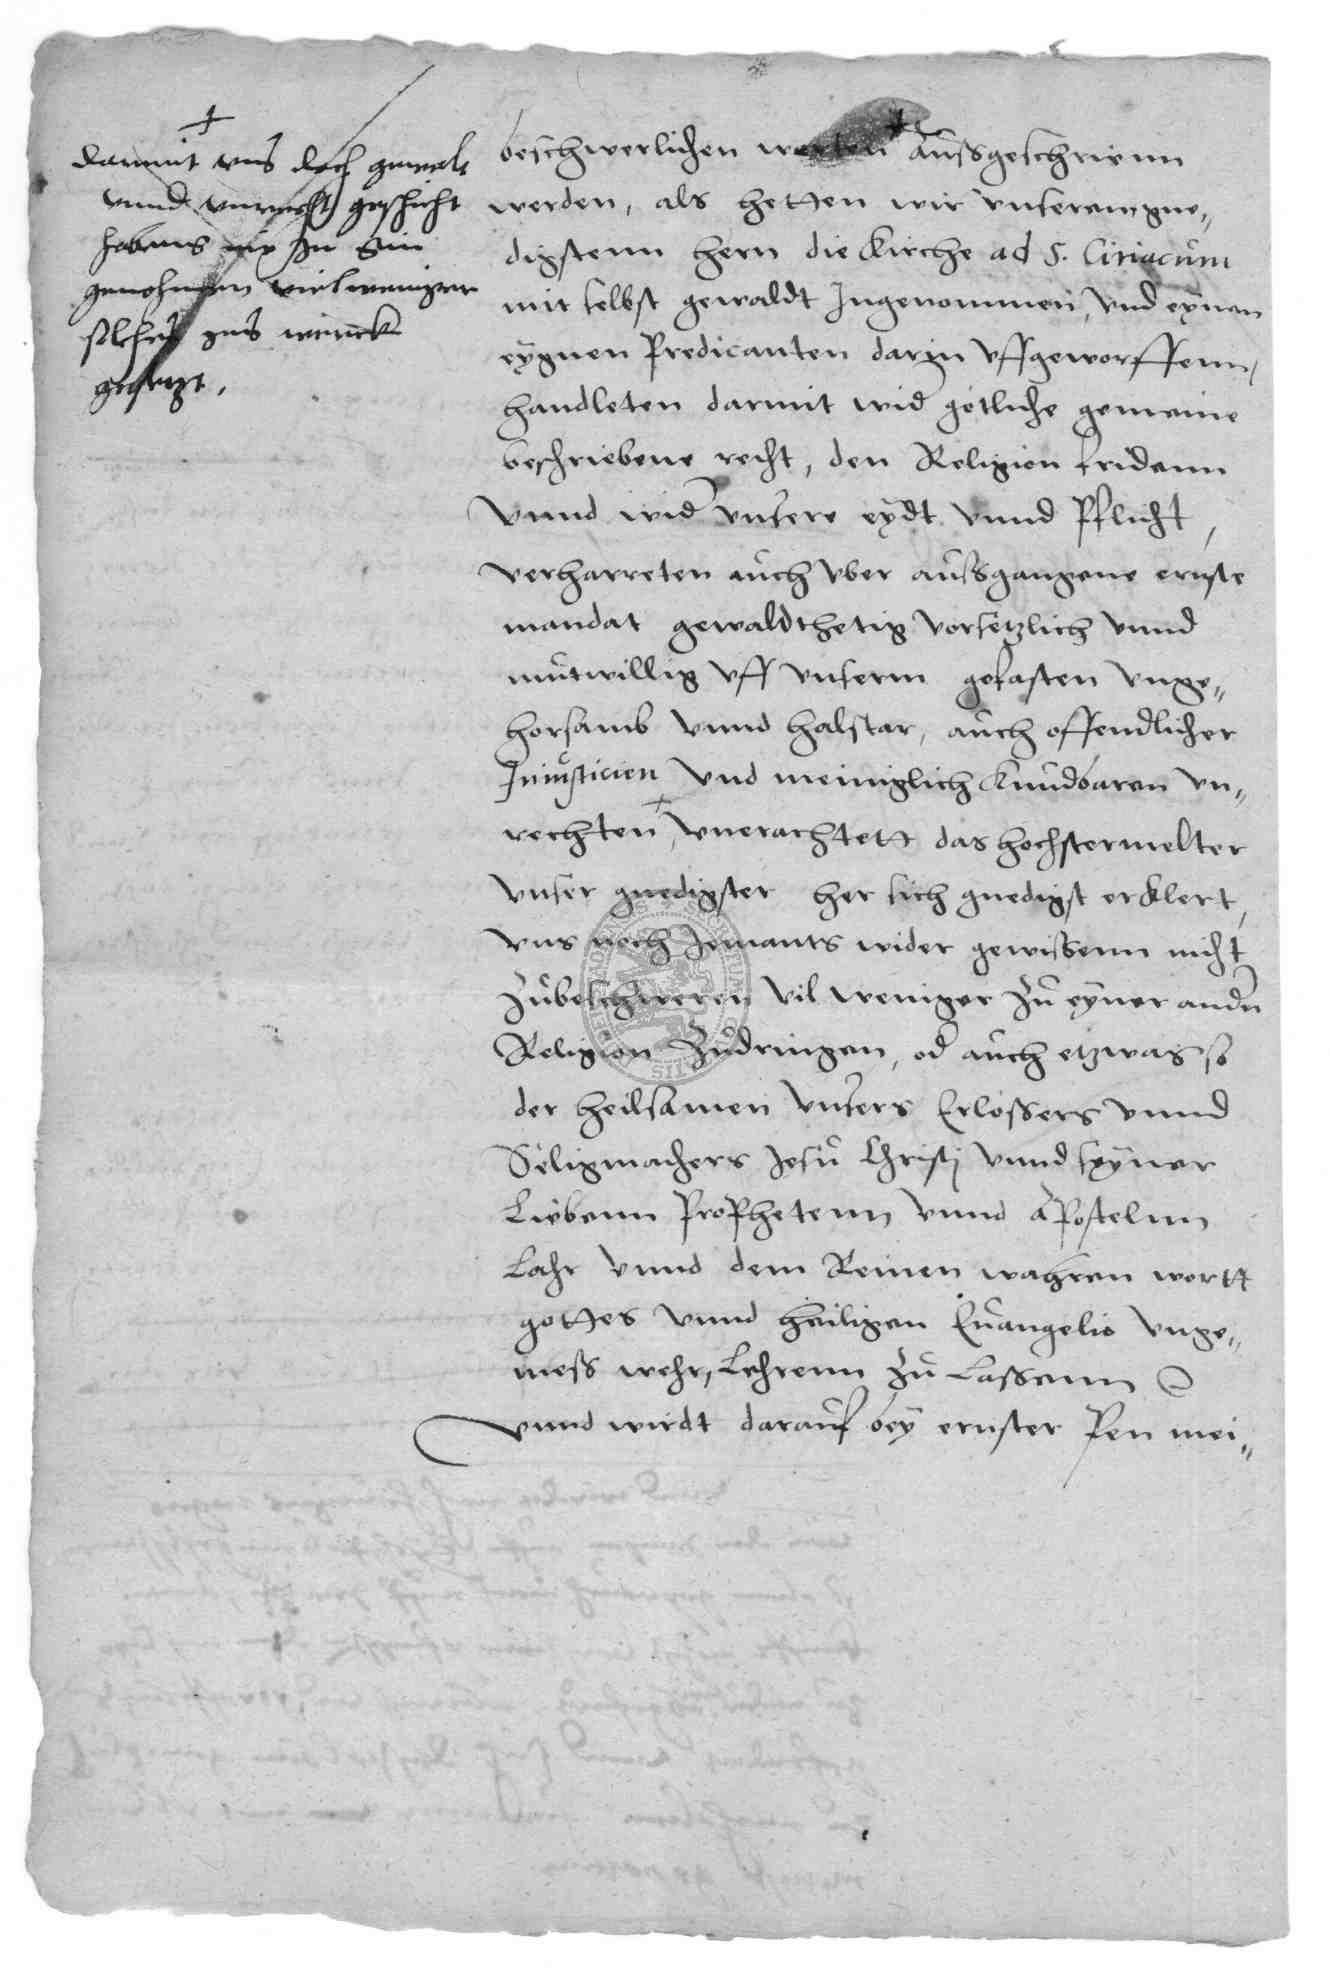 dammit uns doch gwalt
unnd unrecht geschicht
habens nie In Sin
genohmen viel weniger
solches ins werck
gesezt.
beschwerlichen worten Aussgeschriren
werden, als hetten wir unserem gne„
digstenn hern die Kirche ad S. Ciriacum
mit selbst gewaldt Ingenommen, und eynen
eygnen Predicanten darin uffgeworffenn,
handleten darmit wid götliche gemeine
beschriebene recht, den Religion fridenn
unnd wid unsere eydt unnd Pflicht,
verharreten auch uber aussgangene ernste
mandat gewaldthetig vorsetzlich unnd
mutwillig uff unserm gefasten unge„
horsamb unnd halstar, auch offendlicher
Iniusticien und meiniglich kundbaren un„
rechten, unerachtett das hochstermelter
unser gnedigster her sich gnedigst erklert,
uns noch Jemants wider gewissenn nicht
zubeschweren vil weniger zu eyner andn
Religion zudringen, od auch etzwas so
der heilsamen unsers Erlossers unnd
Seligmachers Jesu Christj unnd seyner
Liebenn Prophetenn unnd Apostelnn
Lahr unnd dem Reinen wahren wortt
gottes unnd heiligen Euangelio unge„
mess wehr, Lehrenn zu Lassenn
unnd wirdt darauf bey ernster Pen mei„